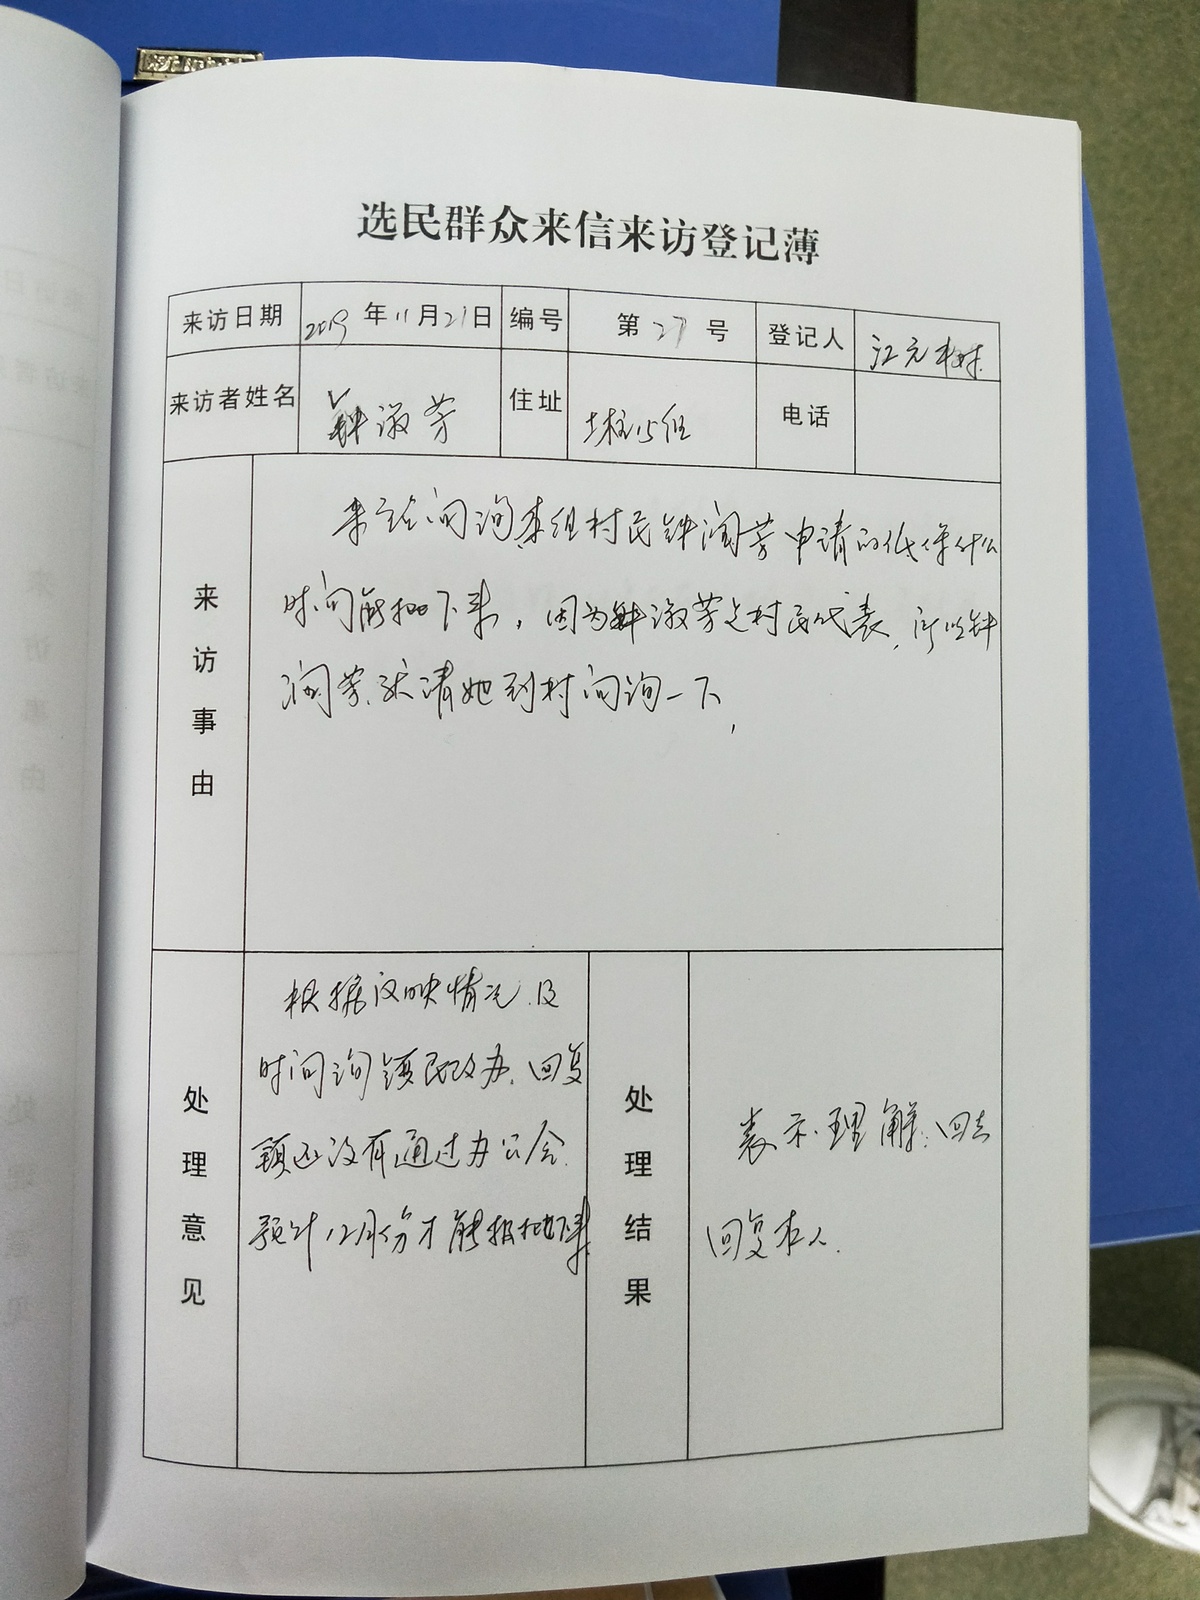 选民群众来信来访登记薄
来访日期 2019年11月21日 编号 第27号 登记人 江元
来访者姓名 钟淑芳 住址 15组 电话
来访事由
来 问询本组村民钟润芳申请的低保什么
时间能批下来,因为钟淑芳是村民代表,所以钟
润芳 请她到村问询一下,
处理意见
根据反映情况,及
时问询镇民政办,回复
镇还没有通过办公会,
预计12月份才能报批下来
处理结果
表示理解,回去
回复本人.